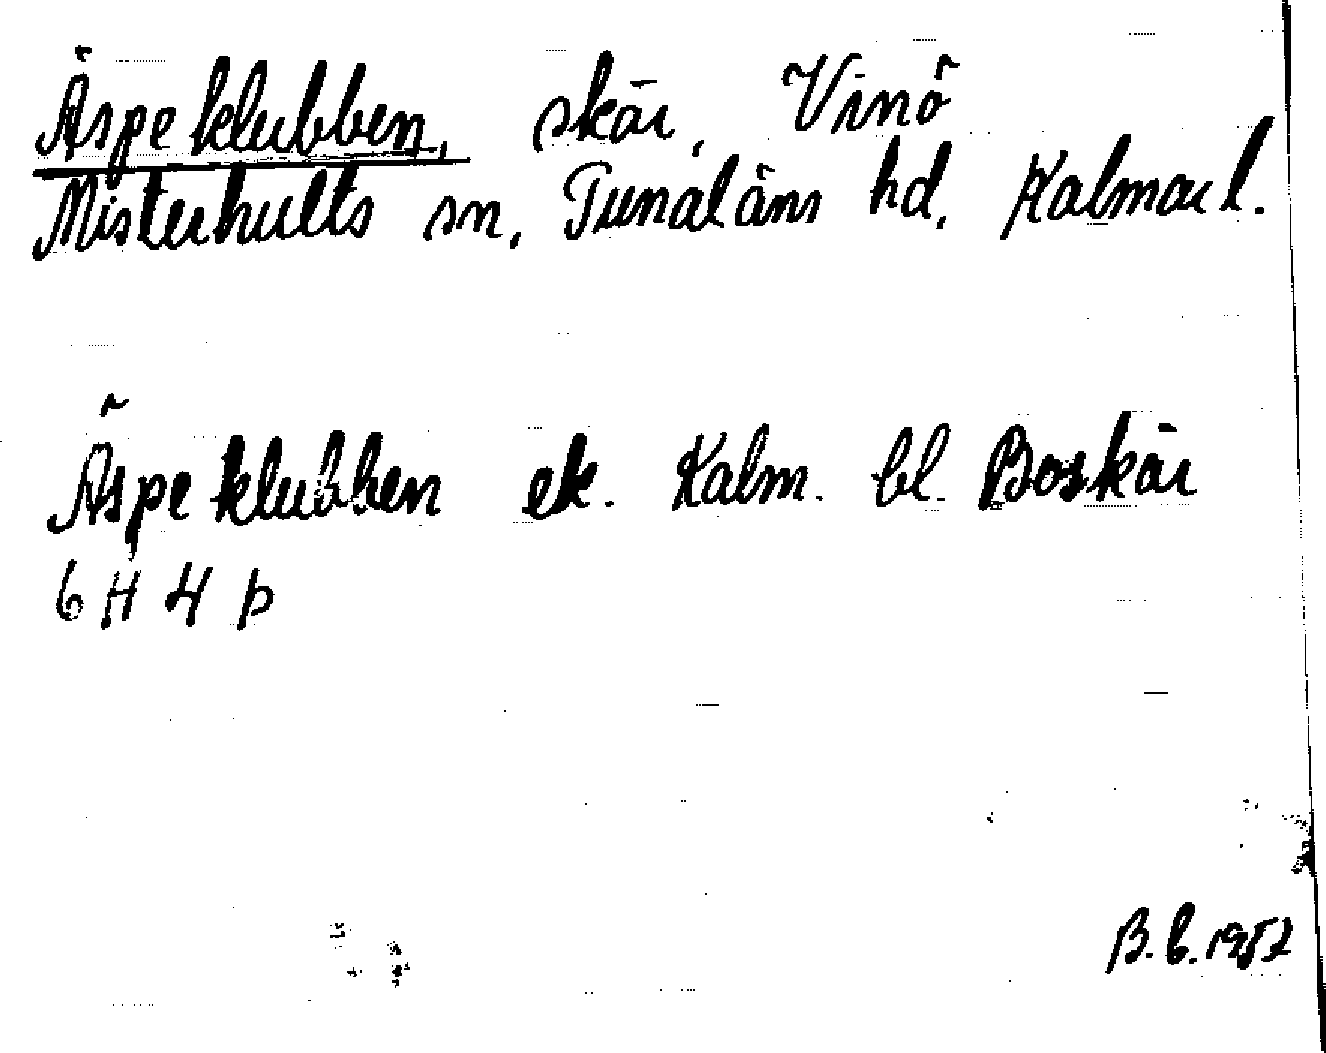 Äspeklubben, skär, Vinö
Misterhults sn, Tunaläns hd, Kalmar l.
Äspeklubben ek. Kalm. bl. Boskär
6 H 4 b
B. C. 1952